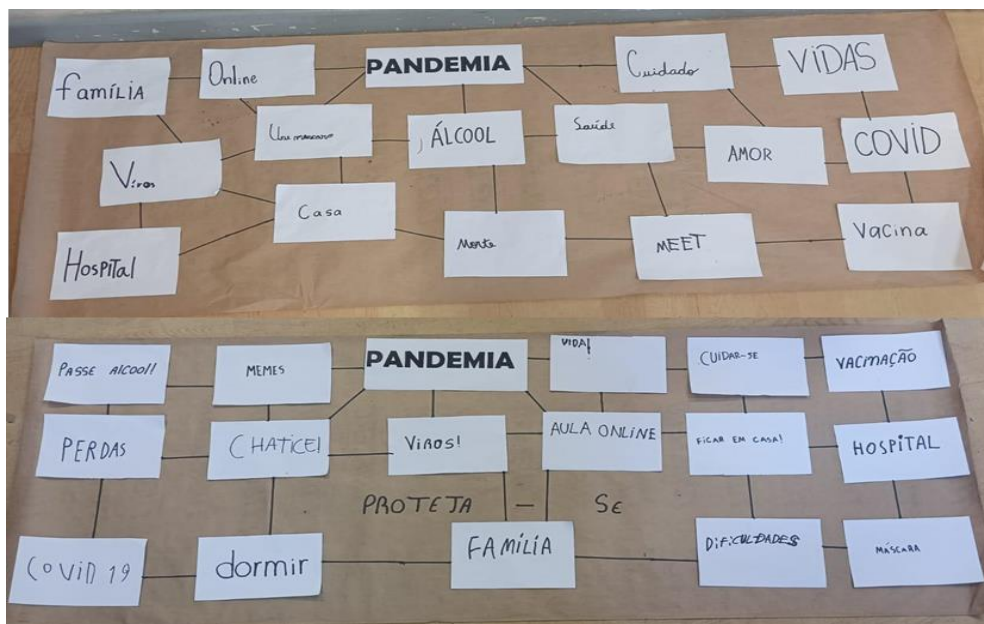 família
Online
PANDEMIA
Cuidado
VIDAS
Víros
Use máscara
, ÁLCOOL
Saúde
AMOR
COVID
Hospital
Casa
Morte
MEET
Vacina
PASSE ALCOOl!
MEMES
PANDEMIA
VIDA!
CUIDAR-SE
VACINAÇÃO
PERDAS
CHATICE!
VIROS!
AULA ONLINE
FICAR EM CASA!
HOSPITAL
PROTEJA - SE
COVID 19
dormir
FAMÍLIA
DIFICULDADES
MÁSCARA